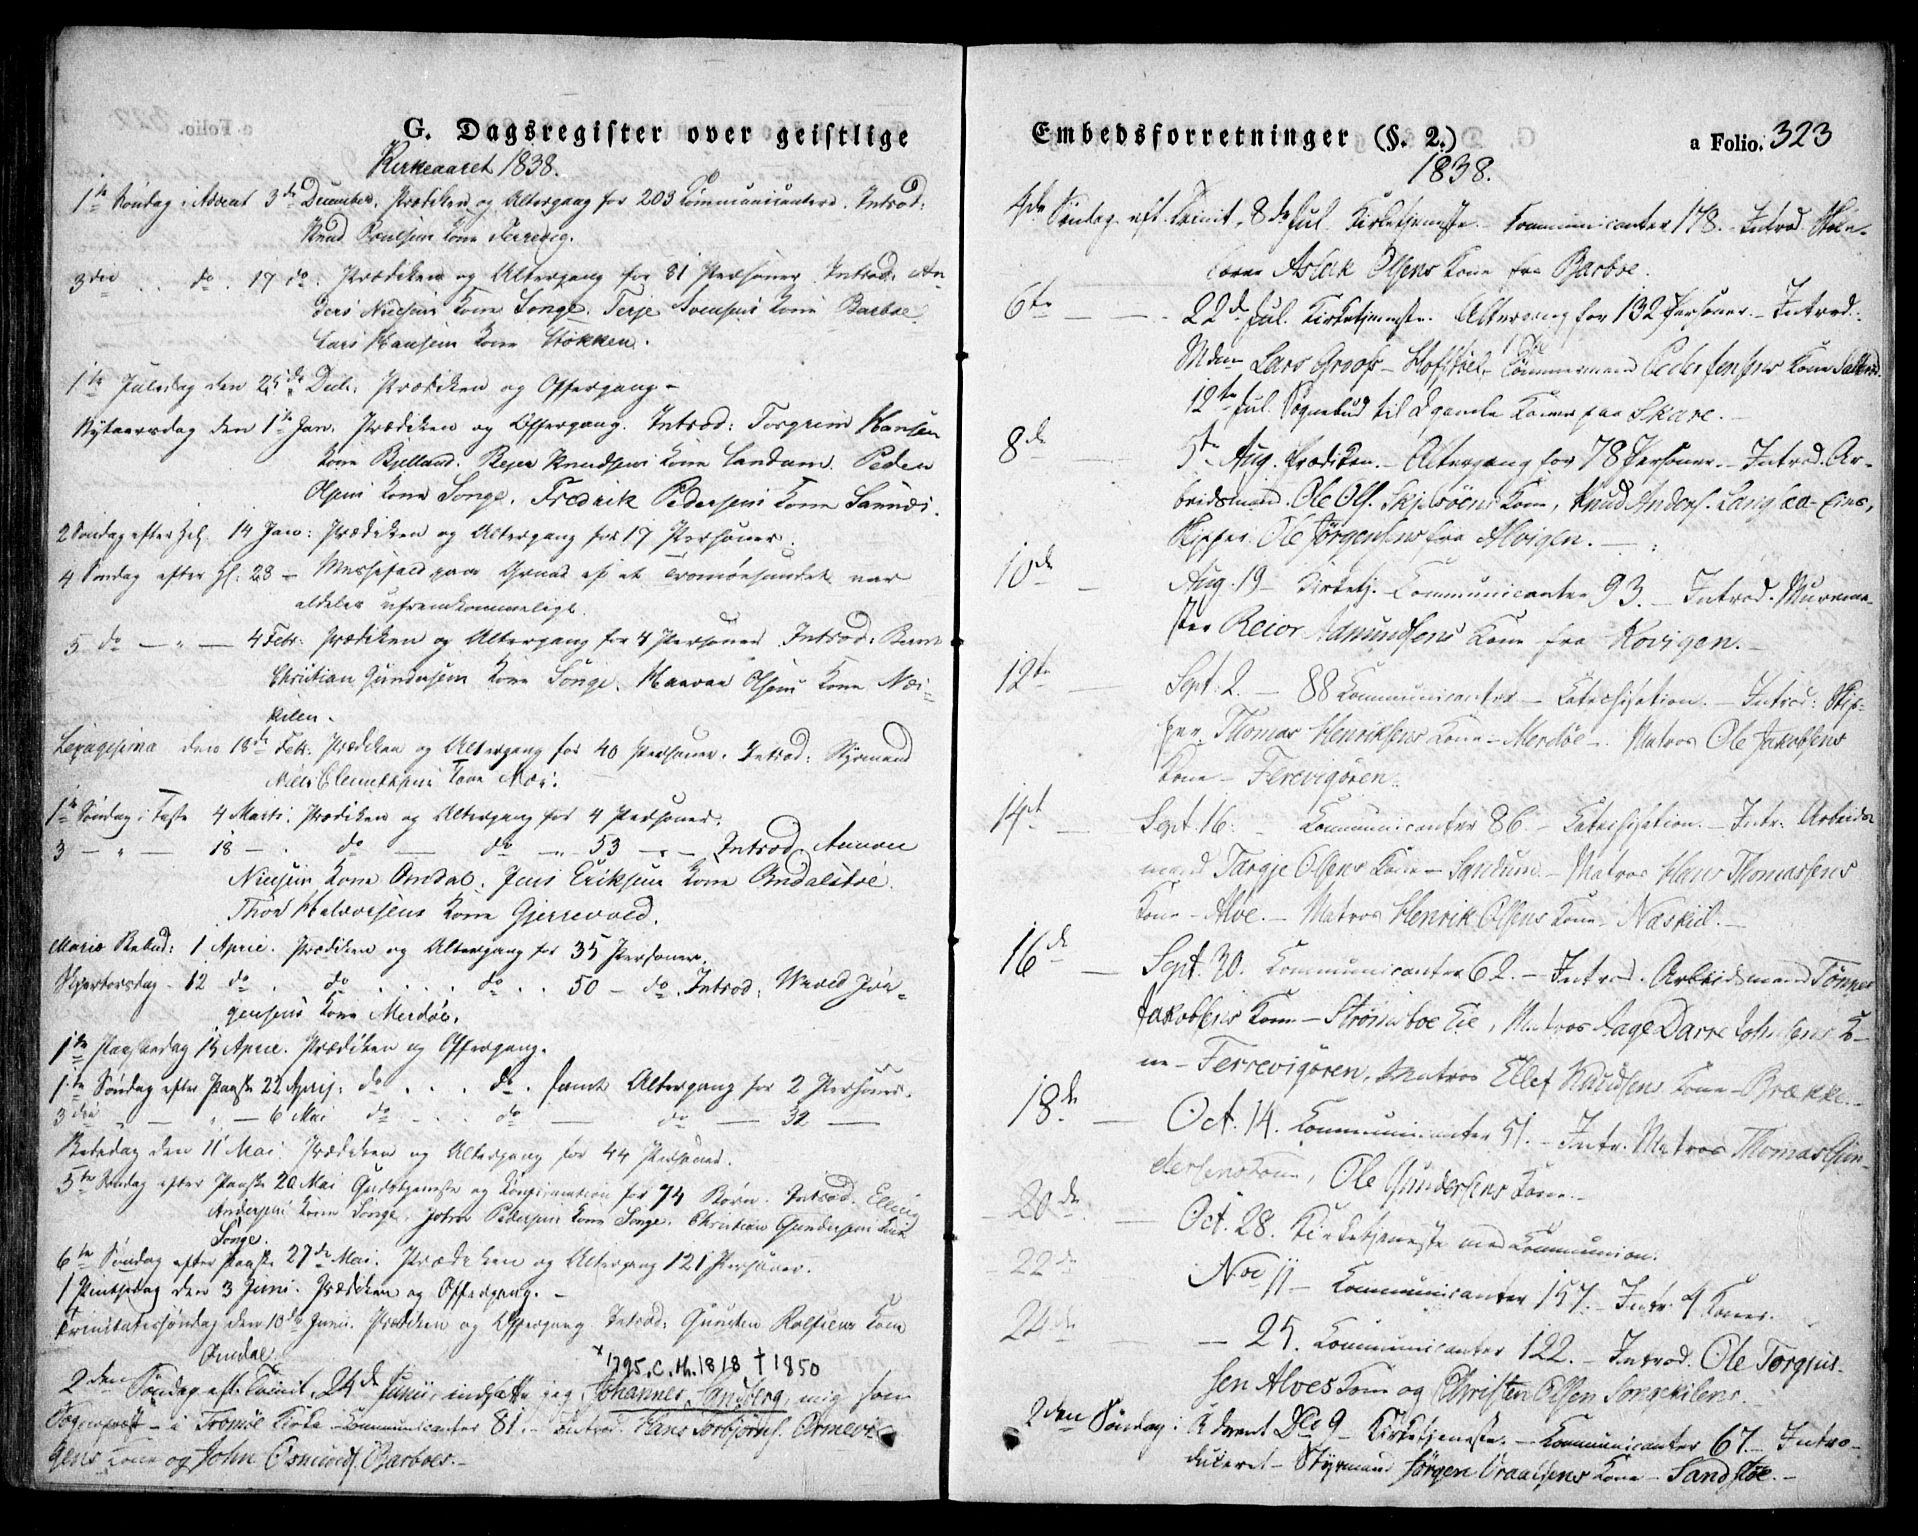 G. Dagsregister over geistlige
Kirkeaaret 1838.
1te Søndag i Advent 3de December. Prædiken og Altergang for 203 Communicantere. Introd:
Knud Poulsens Kone Ferrevig.
3die . . do . 17 do. Prædiken og Altergang for 81 Personer. Introd: An-
ders Nielsens Kone Songe. Terje Svensens Kone Barboe.
Lars Hansens Kone Stokken.
1te Juledag den 25de Decb. Prædiken og Offergang –
Nytaarsdag den 1te Jan: Prædiken og Offergang. Introd: Torgrim Hansens
Kone Bjelland. Rejer Knudsens Kone Sandum. Peder
Olsens Kone Songe. Fredrik Pedersens Kone
2 Søndag efter 14 Jan: Prædiken og Altergang for 17 Personer.
4 Søndag efter 28 – Messefald paa Grund af at Tromøesundet var
aldeles ufremkommeligt.
5 do — " — 4 Febr: Prædiken og Altergang for 4 Personer. Introd:
Christian Gundersens Kone Songe. Haavar Olsens Kone Næs-
kilen.
Sexagesima den 18de Febr. Prædiken og Altergang for 40 Personer. Introd: Styrmand
Niels Clemethsens Kone
1te Søndag i Faste 4 Marts. Prædiken og Altergang for 4 Personer.
3 — " — 18 — . do — do — 53 — — Introd.
Nielsens Kone Omdal. Jens Eriksens Kone Omdalsbøe.
Thor Halvorsens Kone Gjerrevold.
Mariæ Bebud: 1 April. Prædiken og Altergang for 35 Personer.
Skjertorsdag – 12 do . do . . . . do . . 50 – do. Introd: Jør-
gensens Kone Merdøe.
1te Paaskedag 15 April. Prædiken og Offergang.
1te Søndag efter Paaske 22 April: do . . . do . samt Altergang for 2 Personer.
3die " — " — 6 Mai do . . do — do — 32 —
Bededag den 11 Mai. Prædiken og Altergang for 44 Personer.
5te Søndag efter Paaske 20 Mai Gudstjeneste og Confirmation for 74 Børn. Introd. Elling
Andersens Kone Songe. John Pedersens Kone Songe. Christian Gundersens Kone
Songe.
6te Søndag efter Paaske 27de Mai. Prædiken og Altergang 121 Personer.
1 Pintsedag den 3 Juni. Prædiken og Offergang. –
Trinitatissøndag den 10de Juni. Prædiken og Offergang. Introd: Gunsten Rolfsens Kone
Omdal
x 1795. C. th. 1818 † 1850
2den Søndag eft. Trinit. 24de Junii, indsatte jeg Johannes Sandberg, mig som
Sogneprest – i Tromøe Kirke – Communicanter 81. – Introd. Hans Torbjørns.
gens Kone og John Osmunds. Barboes. –
Embedsforretninger (§. 2.)
a Folio. 323
1838.
4de Søndag eft. Trinit. 8de Jul. Kirketjeneste. – Communicanter 178. – Introd.
Aslak Olsens Kone fra Barboe.
6te — — – 22de Jul. Kirketjeneste. Altergang for 132 Personer. – Introd.:
Lars Groos – Tømmermand Pedersens Kone
12te Jul. Sognebud til 2 gamle Koner paa Skare. –
8de — 5te Aug. Prædiken. – Altergang for 78 Personer. – Introd. Ar-
beidsmand Ole Ols. Skjelsøens Kone, Knud Anders. Langsæ-Eies,
Skipper Ole Jørgensens fra Alvigen. –
10de — Aug. 19 – Kirketj. – Communicanter 93. – Introd. Murme-
ster Reior Admundsens Kone fra Kovigen. –
12te — Sept: 2. – 88 Communicanter – Catechisation. – Introd: Skip-
per Thomas Henriksens Kone – Merdøe –. Matros Ole Jakobsens
Kone – Ferevigøren.
14de — Sept. 16: – Communicanter 86. – Catechisation. – Intr: Arbeids-
mand Targje Olsens Kone – Sandum. – Matros Hans Thomassens
Kone – Alve. – Matros Henrik Olsens Kone – Naskil. –
16de — Sept. 30. Communicanter 62. – Introd. Arbeidsmand Tønnes
Jakobsens Kone – Strømsboe Eie, Matros Aage Darre Johnsens Ko-
ne – Ferrevigøren, Matros Ellef Knudsens Kone – Brække. –
18de — Oct. 14. Communicanter 51. – Intr. Matros Thomas Gun-
dersens Kone, Ole Gundersens Kone. –
20de — Oct. 28. Kirketjeneste med Communion.
22de Nov 11 – Communicanter 157. – Intr. 4 Koner.
24de — – 25. Communicanter 122. – Introd. Ole Torgius-
sen Alves Kone og Christen Olsen Songekilens.
2den Søndag i Advent Dec 9 – Kirketjeneste. – Communicanter 67. – Intro-
duceret – Styrmand Jørgen Oraalsens Kone – Sandstøe. –